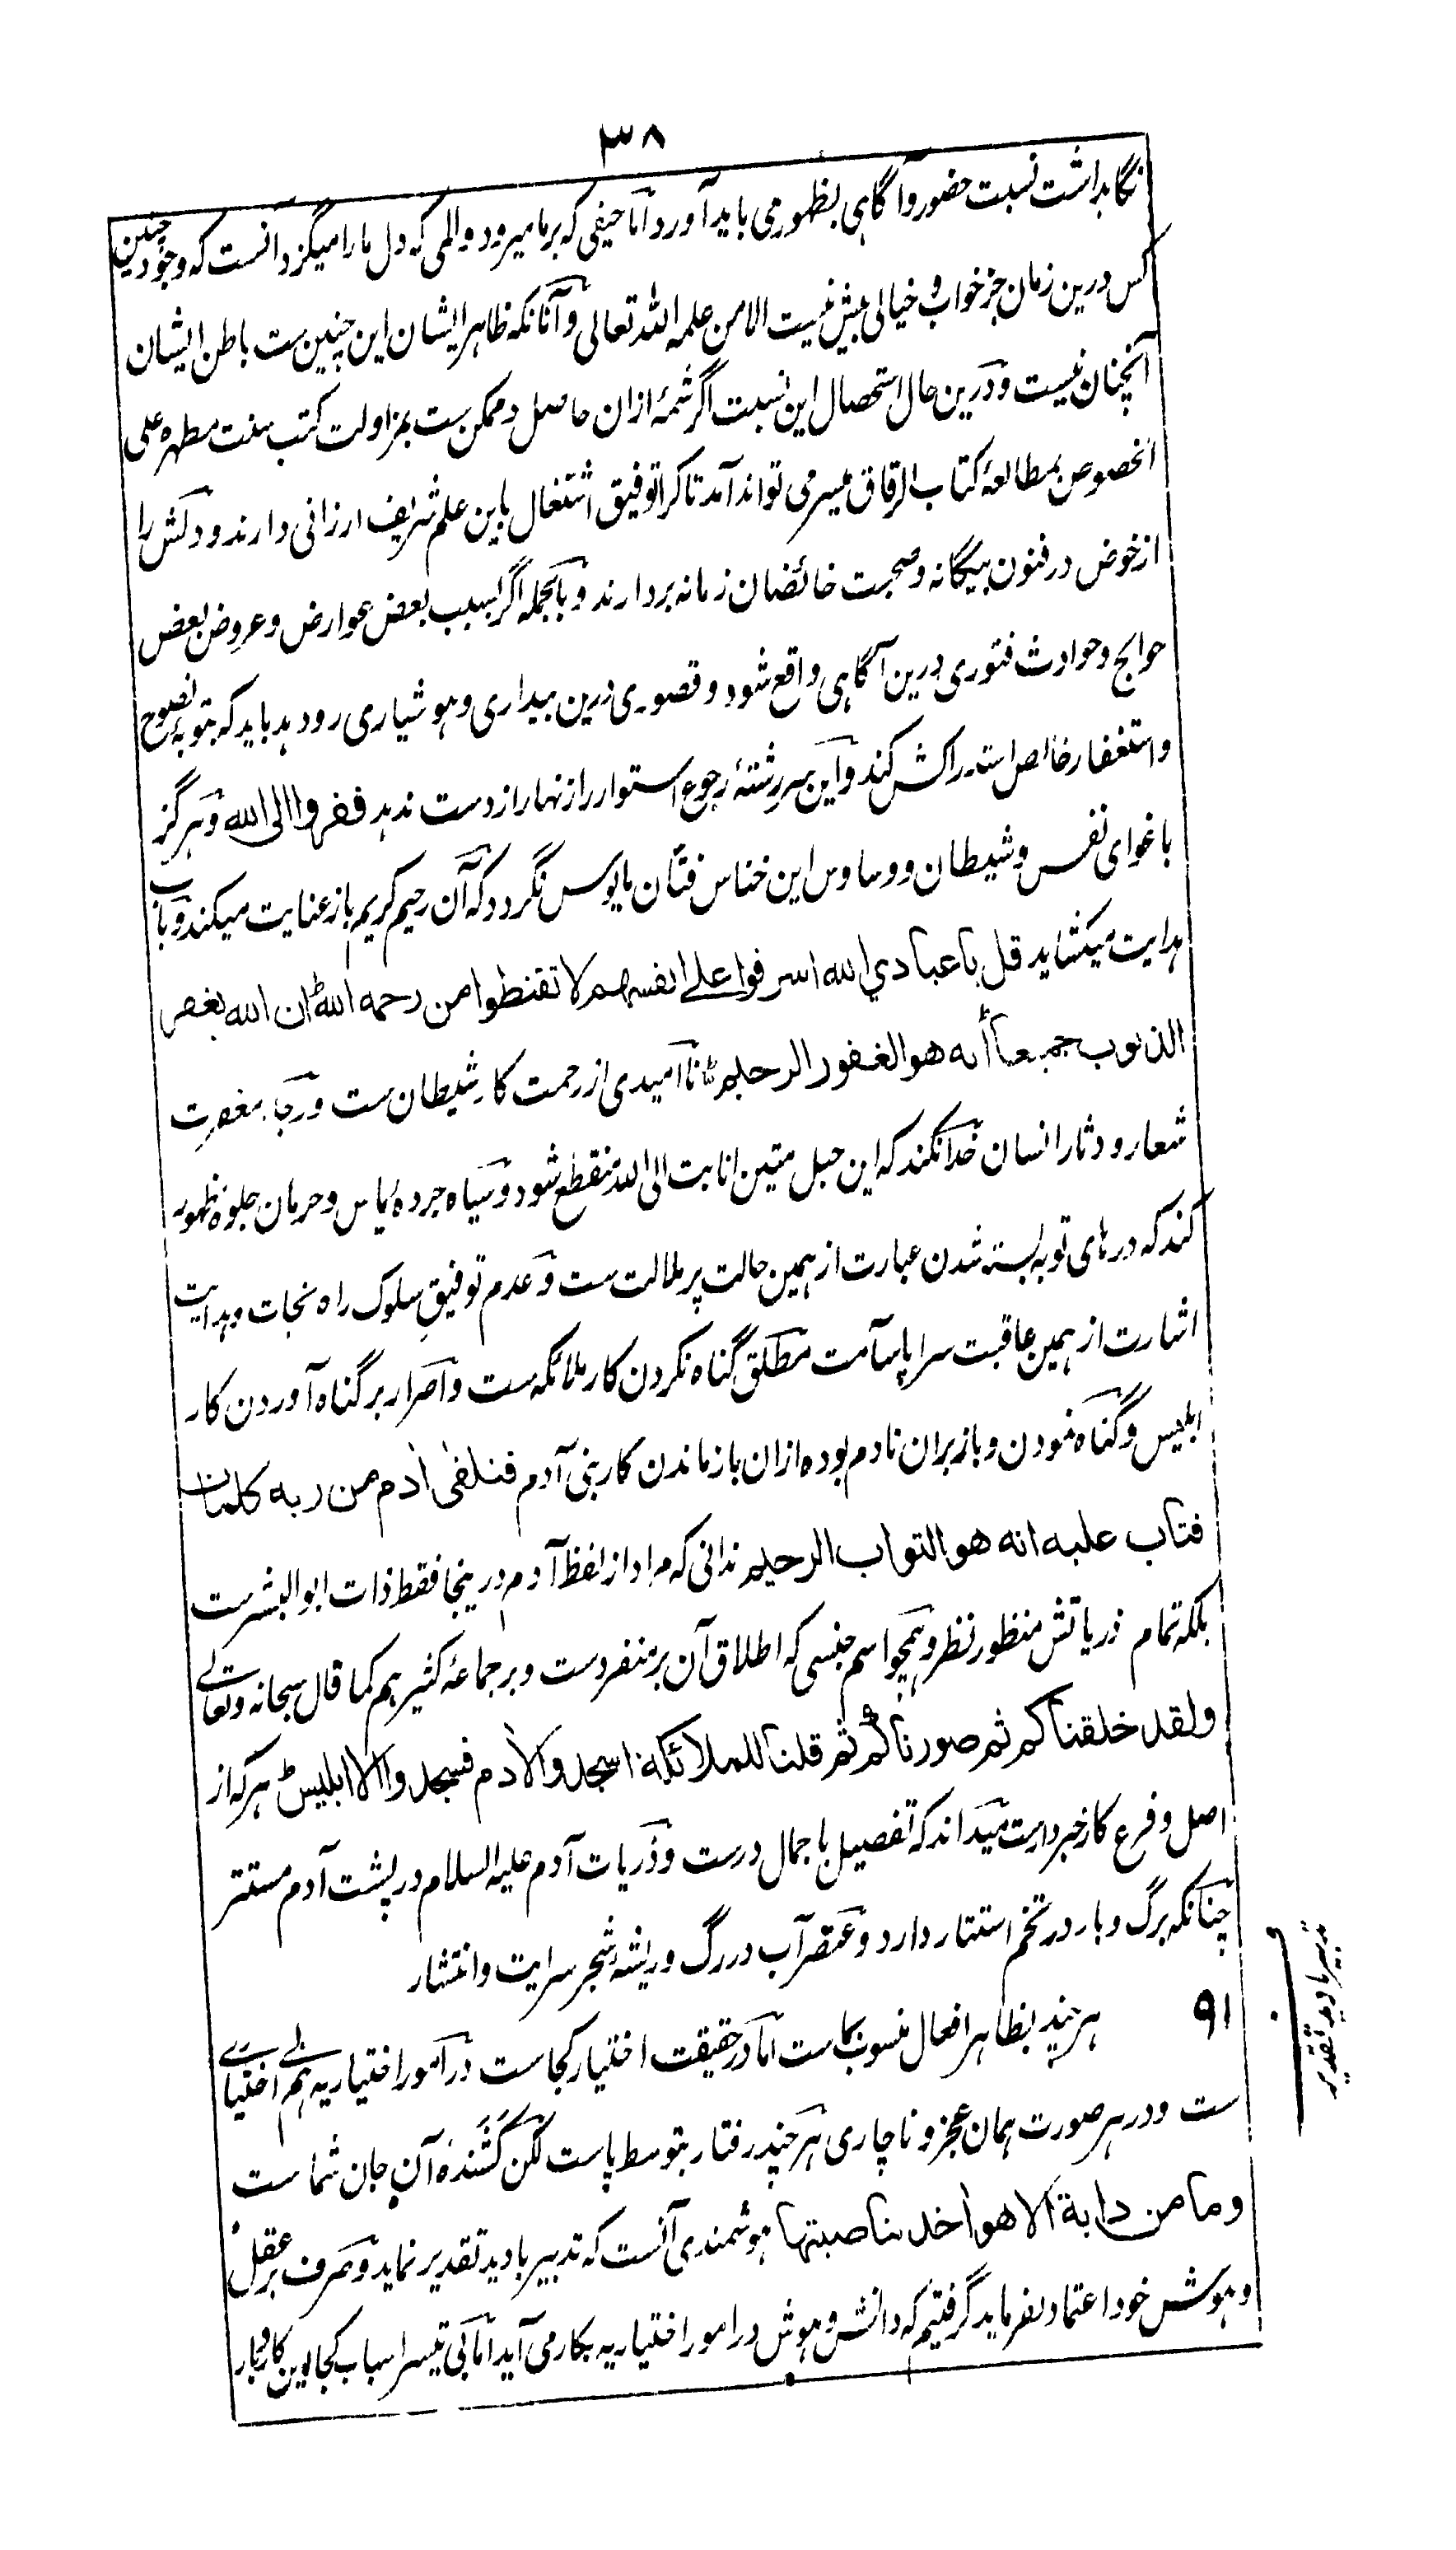 ۳۸
نگاہداشت نسبت حضور و آگاہی بظهور می باید آورد اما حیفی که بر ما میرود و المی که دل ما را میگزد آنست که وجود چنین
کس درین زمان جز خواب و خیالی بیش نیست الا من علمه الله تعالی و آنانکه ظاہر ایشان این چنین ست باطن ایشان
آنچنان نیست و درین حال استحصال این نسبت اگر شمهٔ ازان حاصل و ممکن ست بمزاولت کتب سنت مطهره علی
الخصوص بمطالعهٔ کتاب الرقاق میسر می تواند آمد تا کرا توفیق اشتغال باین علم شریف ارزانی دارند و دلش را
از خوض در فنون بیگانه و صحبت خائضان زمانه بردارند و بالجمله اگر بسبب بعض عوارض و عروض بعض
حوائج و حوادث فتوری درین آگاہی واقع شود و قصوری درین بیداری و ہوشیاری رو دہد باید که بتوبهٔ نصوح
و استغفار خالص استدراکش کند و این سررشتهٔ رجوع استوار را زنہار از دست ندہد ففروا الی الله و ہرگز
باغوای نفس و شیطان و وساوس این خناس فتان مایوس نگردد که آن رحیم کریم باز عنایت میکند و باب
ہدایت میکشاید قل یا عبادي الله اسرفوا علے انفسهم لا تقنطوا من رحمة الله ان الله یغفر
الذنوب جمیعا انه هو الغفور الرحیم نا امیدی از رحمت کار شیطان ست و رجاء مغفرت
شعار و دثار انسان خدا نکند که این حبل متین انابت الی الله منقطع شود و سیاه جرده یاس و حرمان جلوه ظهور
کند که درہای توبه بسته شدن عبارت از ہمین حالت پر ملالت ست و عدم توفیق سلوک راه نجات و ہدایت
اشارت از ہمین عاقبت سراپا سآمت مطلق گناه نکردن کار ملائکه ست و اصرار بر گناه آوردن کار
ابلیس و گناه نمودن و باز بران نادم بوده ازان باز ماندن کار بنی آدم فتلقی اٰدم من ربه کلمات
فتاب علیه انه هو التواب الرحیم ندانی که مراد از لفظ آدم درینجا فقط ذات ابوالبشر ست
بلکه تمام ذریاتش منظور نظر و ہمچو اسم جنسی که اطلاق آن بر منفرد ست و بر جماعهٔ کثیر ہم کما قال سبحانه و تعالے
ولقد خلقناکم ثم صورناکم ثم قلنا للملائکة اسجدوا لاٰدم فسجدوا الا ابلیس ہر که از
اصل و فرع کار خبردار ست میداند که تفصیل باجمال درست و ذریات آدم علیه السلام در پشت آدم مستتر
چنانکه برگ و بار در تخم استتار دارد و عنصر آب در رگ و ریشهٔ شجر سرایت و انتشار
۹۱ ہر چند بظاہر افعال منسوب بماست اما در حقیقت اختیار کجاست در امور اختیاریه ہم بے اختیارے
ست و در ہر صورت ہمان عجز و ناچاری ہر چند رفتار بتوسط پاست لکن کشنده آن جان شماست
وما من دابة الا هو اٰخذ بناصیتها ہوشمندی آنست که تدبیر بادید تقدیر نماید و صرف بر عقل
و ہوش خود اعتماد نفرماید گرفتیم که دانش و ہوش در امور اختیاریه بکار می آید اما بی تیسر اسباب کجا بوین کار و بار
تدبیر بادید تقدیر